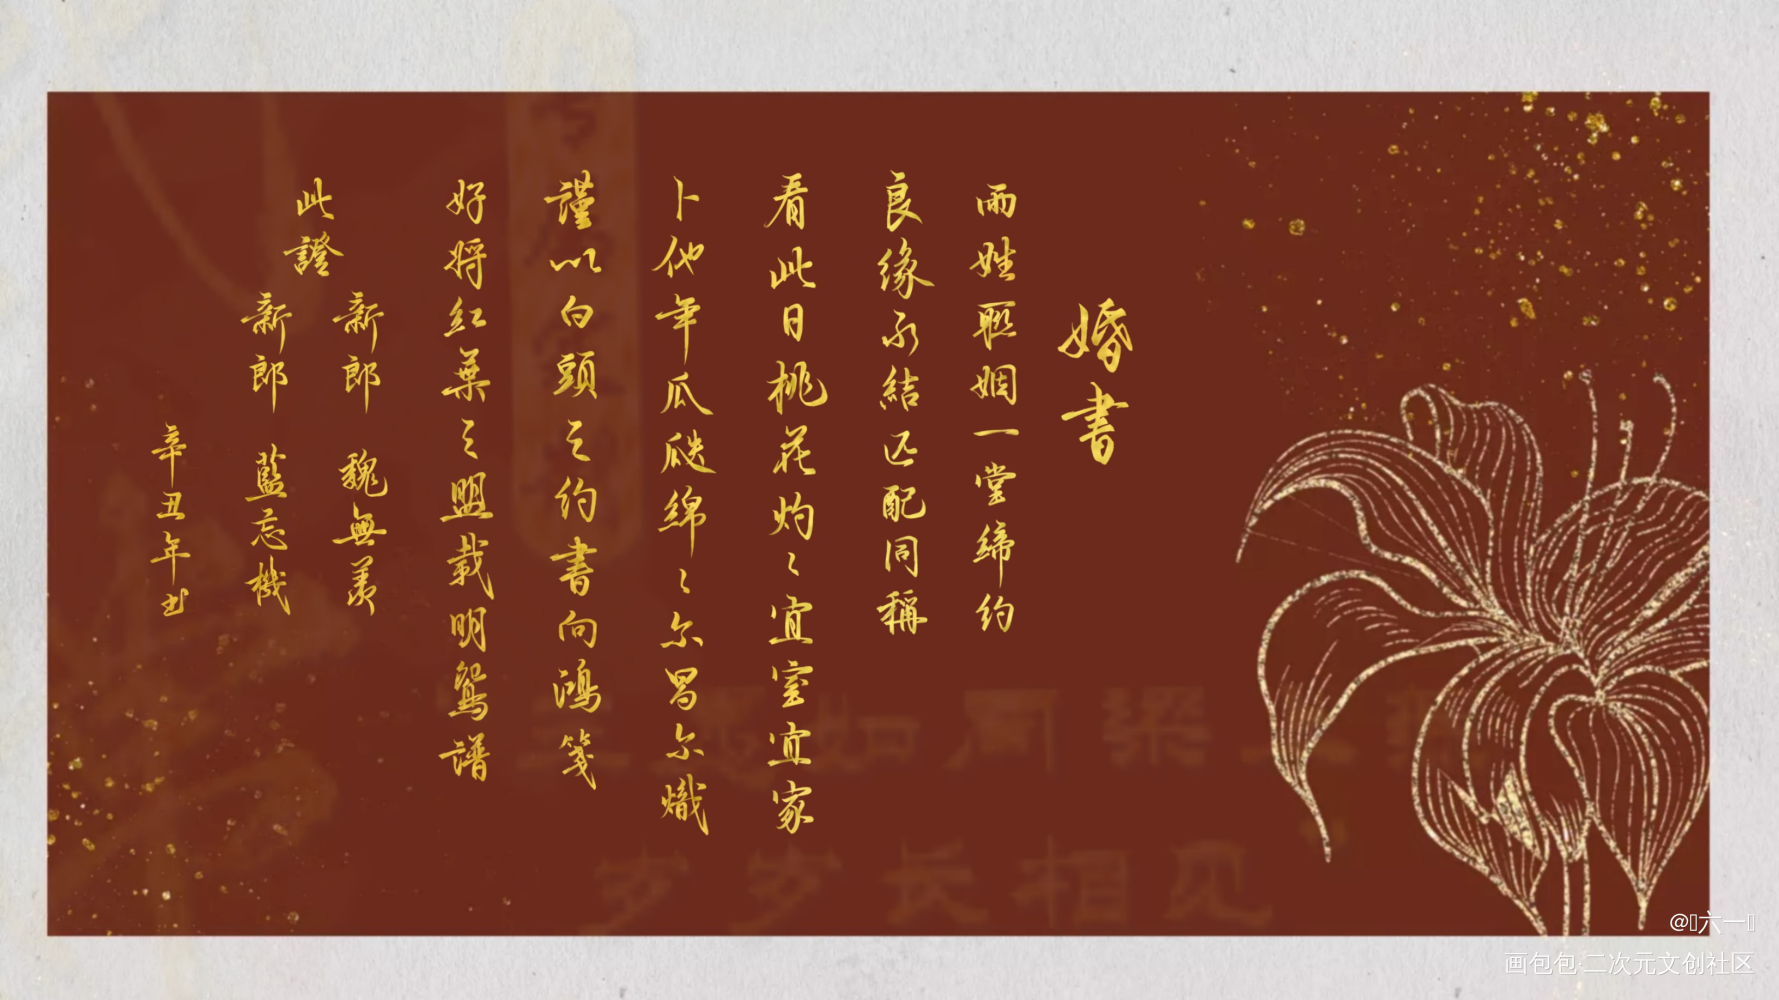 婚書
兩姓聯姻一堂締约
良缘永結匹配同稱
看此日桃花灼灼宜室宜家
卜他年瓜瓞綿綿尔昌尔熾
謹以白頭之约書向鴻箋
好将紅葉之盟载明鸳譜
此證
新郎 魏無羡
新郎 藍忘機
辛丑年
岁岁长相见
六一
画包包·二次元文创社区